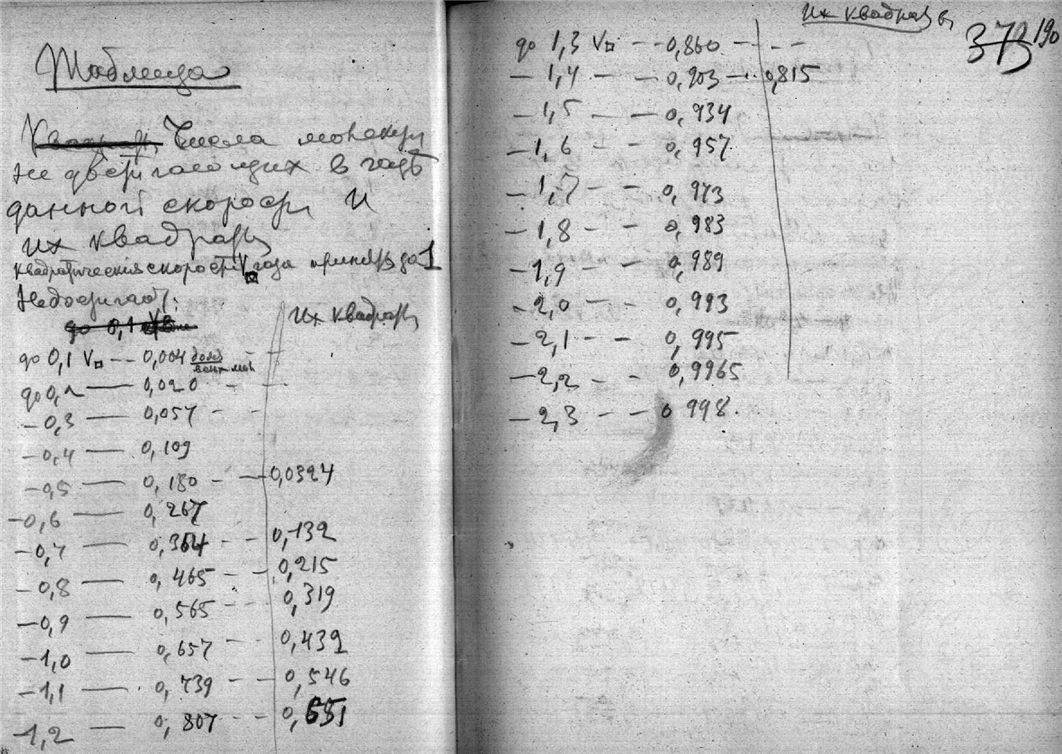 Таблица
Числа молекул
не двигающихся в газѣ
данной скорости и
их квадраты
Квадратическия скорости V□ газа принята до 1
Недостигают:
до 0,1
их квадраты
до 0,1 V□ -- 0,004 долей
до 0,2 — 0,020 -
- 0,3 — 0,057 - -
- 0,4 — 0,109
- 0,5 — 0,180 - - 0,0324
- 0,6 — 0,267
- 0,7 — 0,364 - - 0,132
- 0,8 — 0,465 - - 0,215
- 0,9 — 0,565 - - 0,319
- 1,0 — 0,657 - - 0,432
- 1,1 — 0,739 - - 0,546
- 1,2 — 0,807 - - 0,651
их квадраты
373 190
до 1,3 V□ -- 0,860 - - -
- 1,4 - - 0,903 - - 0,815
- 1,5 - - 0,934
- 1,6 - - 0,957
- 1,7 - - 0,973
- 1,8 - - 0,983
- 1,9 - - 0,989
- 2,0 - - 0,993
- 2,1 - - 0,995
- 2,2 - - 0,9965
- 2,3 - - 0,998